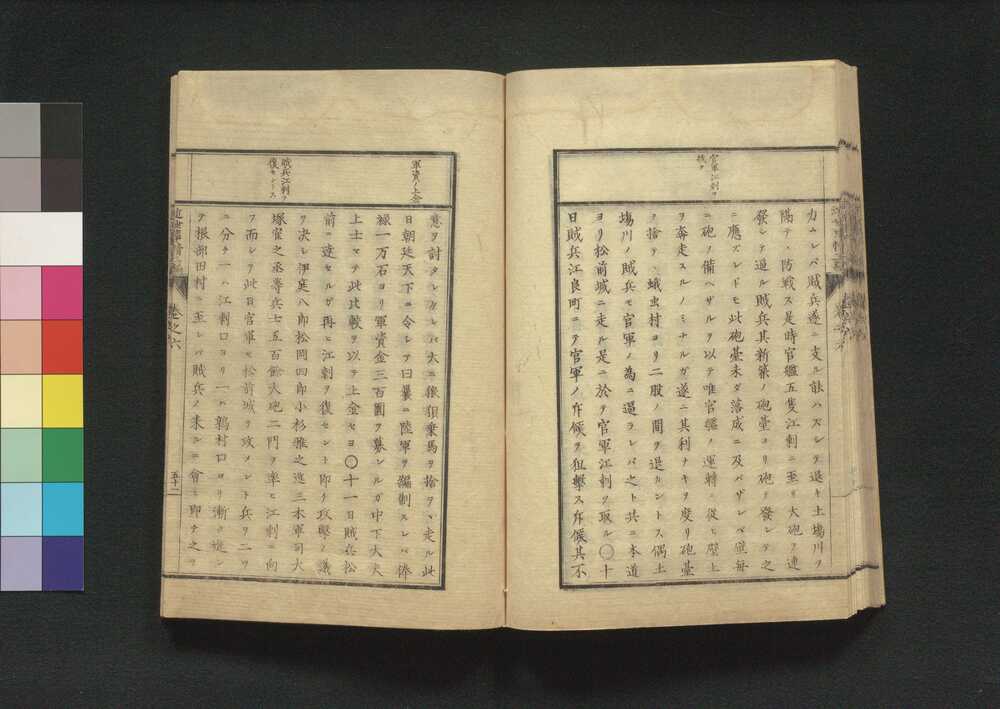 官軍江刺ヲ
残ク
力ムレバ賊兵遂ニ支ル能ハズシテ退キ土塲川ヲ
隔テヽ防戦ス是時官艦五隻江刺ニ至リ大砲ヲ連
發シテ過ル賊兵其新築ノ砲臺ヨリ砲ヲ發シテ之
ニ應ズレドモ此砲臺未ダ落成ニ及バザレバ壁毎
ニ砲ノ備ヘザルヲ以テ唯官艦ノ運轉ニ從ヒ壁上
ヲ奔走スルノミナルガ遂ニ其利ナキヲ度リ砲臺
ヲ捨テヽ蛾虫村ヨリ二股ノ間ヲ退カントス偶土
塲川ノ賊兵モ官軍ノ為ニ逼ラレバ之ト共ニ本道
ヨリ松前城ニ走ル是ニ於テ官軍江刺ヲ取ル〇十
日賊兵江良町ニテ官軍ノ斥候ヲ狙撃ス斥候其不
卷之六
軍資ノ上金
賊兵江刺ヲ
復セントス
意ヲ討タレケレバ大ニ狼狽乗馬ヲ捨テヽ走ル此
日朝廷天下ニ令シテ曰曩ニ陸軍ヲ編制スレバ俸
禄一万石ヨリ軍資金三百圓ヲ募シルガ中下大夫
上士マテ此比較ヲ以テ上金セヨ〇十一日賊兵松
前ニ達セルガ再ヒ江刺ヲ復セント即夕攻撃ノ議
ヲ决シ伊庭八郎松岡四郎小杉雅之進三木軍司大
塚霍之丞等兵士五百餘大砲二門ヲ率ヒ江刺ニ向
フ而シテ此日官軍モ松前城ヲ攻メント兵ヲ二ツ
ニ分チ一ハ江刺口ヨリ一ハ鶉村口ヨリ漸ク進ン
デ根部田村ニ至レバ賊兵ノ来ルニ會シ即チ之ヲ
卷之六
五十二